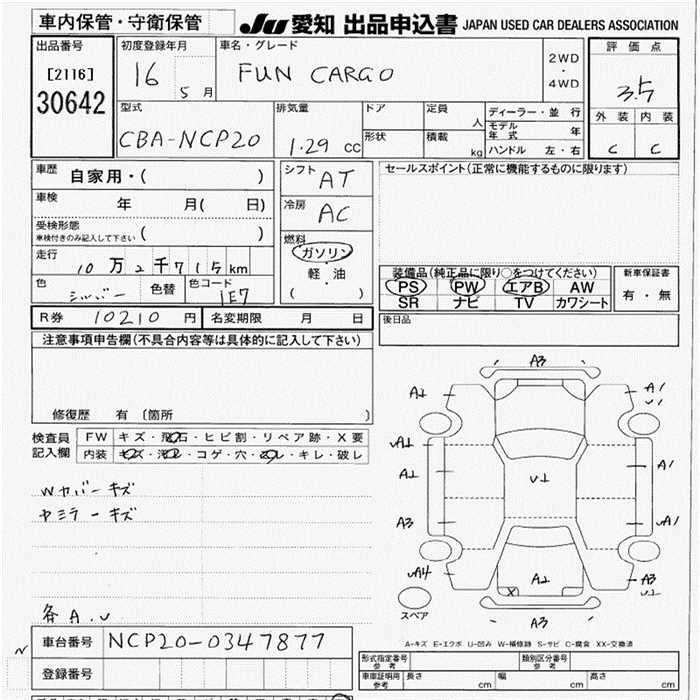 車内保管・守衛保管
JU 愛知 出品申込書 JAPAN USED CAR DEALERS ASSOCIATION
出品番号
[2116]
30642
初度登録年月
16 5 月
車名・グレード
FUN CARGO
2WD
・
4WD
評価点
3.5
外装 内装
C C
型式
CBA-NCP20
排気量
1.29 CC
ドア
形状
定員 人
積載 kg
ディーラー・並行
モデル年式 年
ハンドル 左・右
車歴
自家用・( )
車検
年 月( 日)
受検形態
車検付きのみ記入して下さい ( )
走行
10万2千715km
色
シルバー
色替
色コード
1E7
シフト AT
冷房 AC
燃料
ガソリン
軽・油
( )
セールスポイント(正常に機能するものに限ります)
装備品(純正品に限り○をつけてください)
PS PW エアB AW
SR ナビ TV カワシート
新車保証書
有・無
R券 10210 円
名変期限 月 日
後日品
注意事項申告欄(不具合内容等は具体的に記入して下さい)
修復歴 有〔箇所 〕
検査員
記入欄
FW キズ・飛石・ヒビ割・リペア跡・X要
内装 キズ・汚れ・コゲ・穴・スレ・キレ・破レ
Wカバーキズ
ヤミラーキズ
各A.U
A3
A1
A1
U1
UA1
A1
A1
U1
A3
UA1
UA4
A1
X
A3
U1
A3
スペア
A-キズ E-エクボ U-凹み W-補修跡 S-サビ C-腐食 XX-交換済
車台番号 NCP20-0347877
登録番号
形式指定番号
参考
類別区分番号
参考
車庫証明用
参考
長さ cm
幅 cm
高さ cm